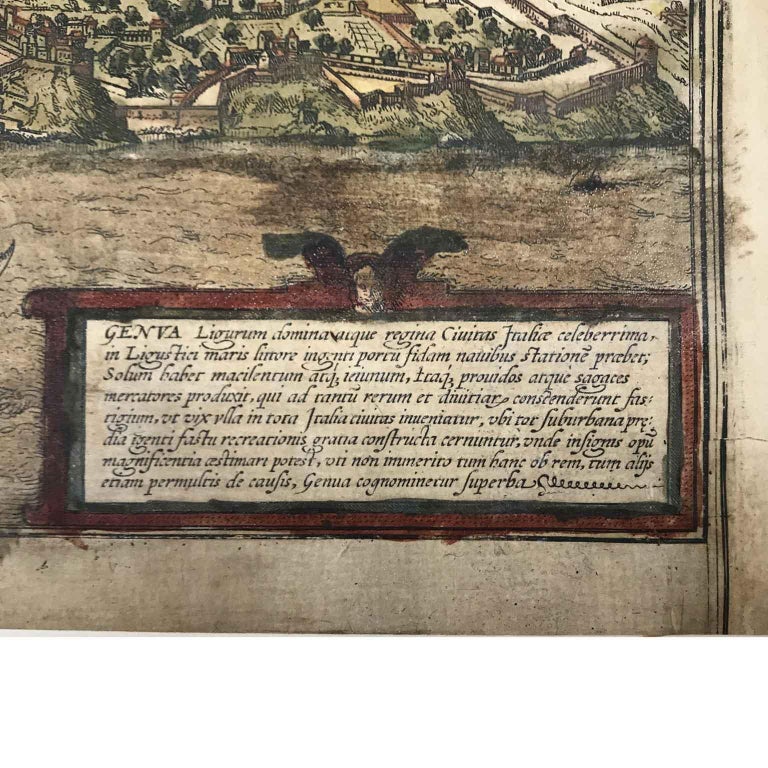 GENVA Ligurum domina atque regina Ciuitas Italiæ celeberrima,
in Ligustici maris littore ingenti portu fidam nauibus statione præbet;
Solum habet macilentum atq; ieiunum, Itaq; prouidos atque sagaces
mercatores produxit, qui ad tantū rerum et diuitiar conscenderunt fas-
tigium, vt vix vlla in tota Italia ciuitas inueniatur, vbi tot suburbana prę-
dia īgenti fastu recreationis gratia constructa cernuntur, vnde insignis opū
magnificentia æstimari potest, vti non immerito tum hanc ob rem, tum alijs
etiam permultis de causis, Genua cognominetur superba